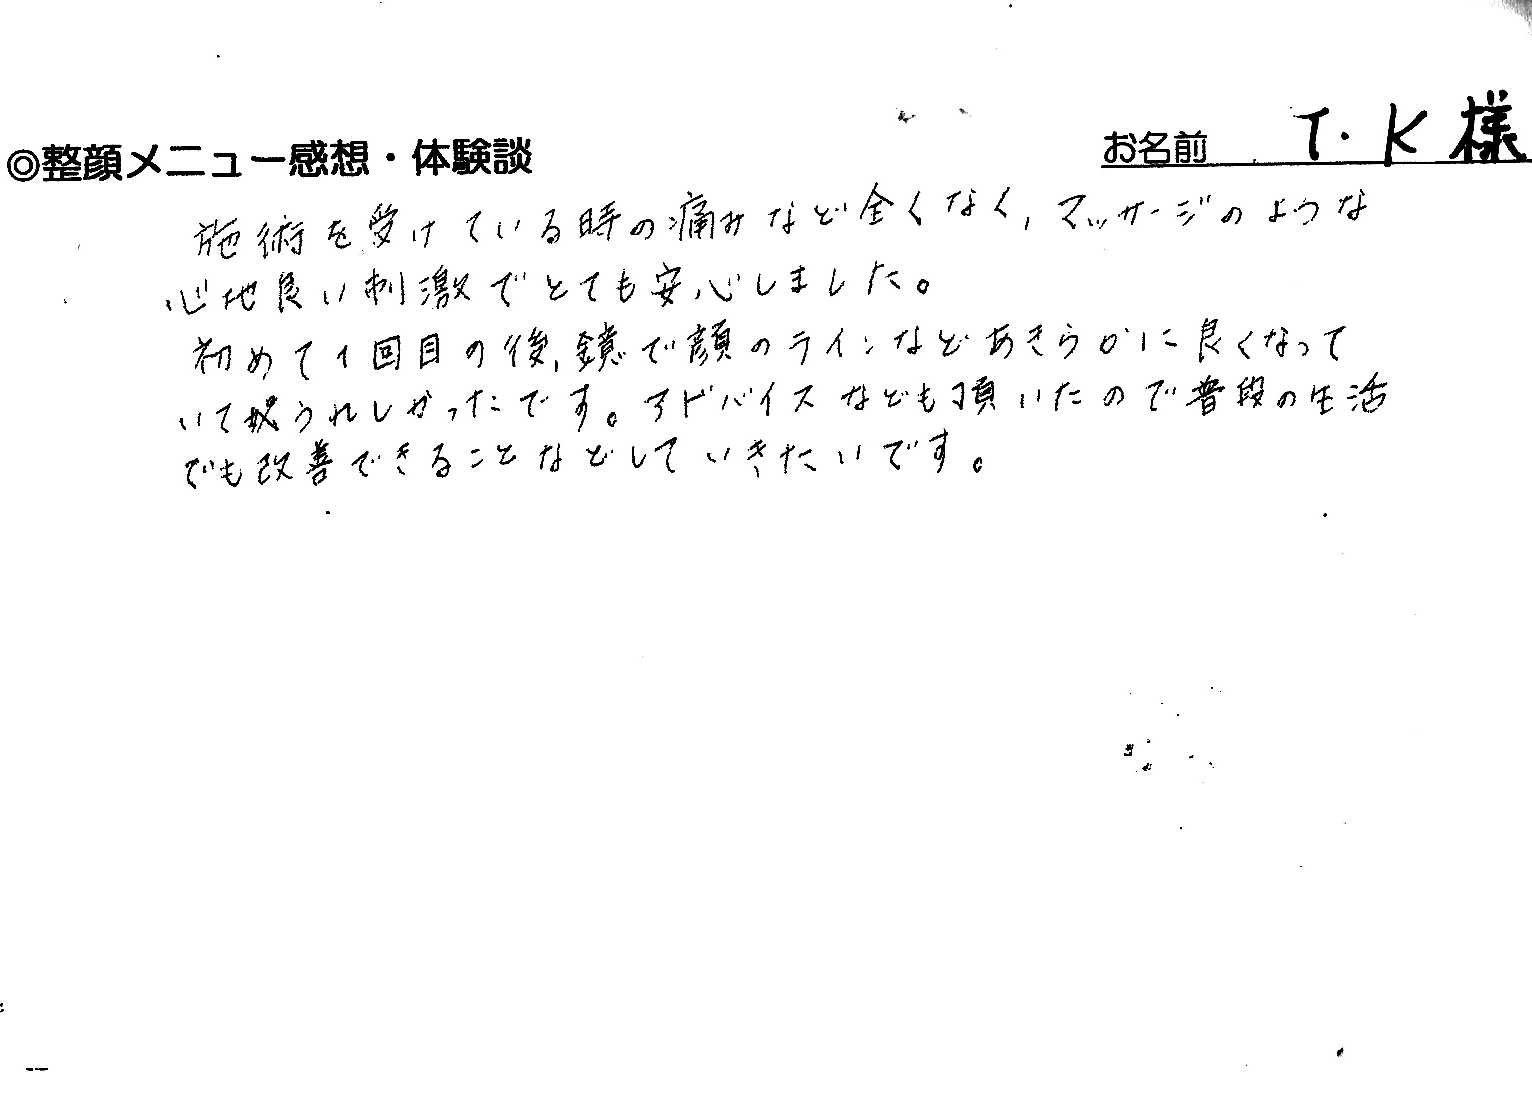 ◎整顔メニュー感想・体験談
お名前 T・K様
施術を受けている時の痛みなど全くなく、マッサージのような
心地良い刺激でとても安心しました。
初めて1回目の後、鏡で顔のラインなどあきらかに良くなって
いてうれしかったです。アドバイスなども頂いたので普段の生活
でも改善できることなどしていきたいです。